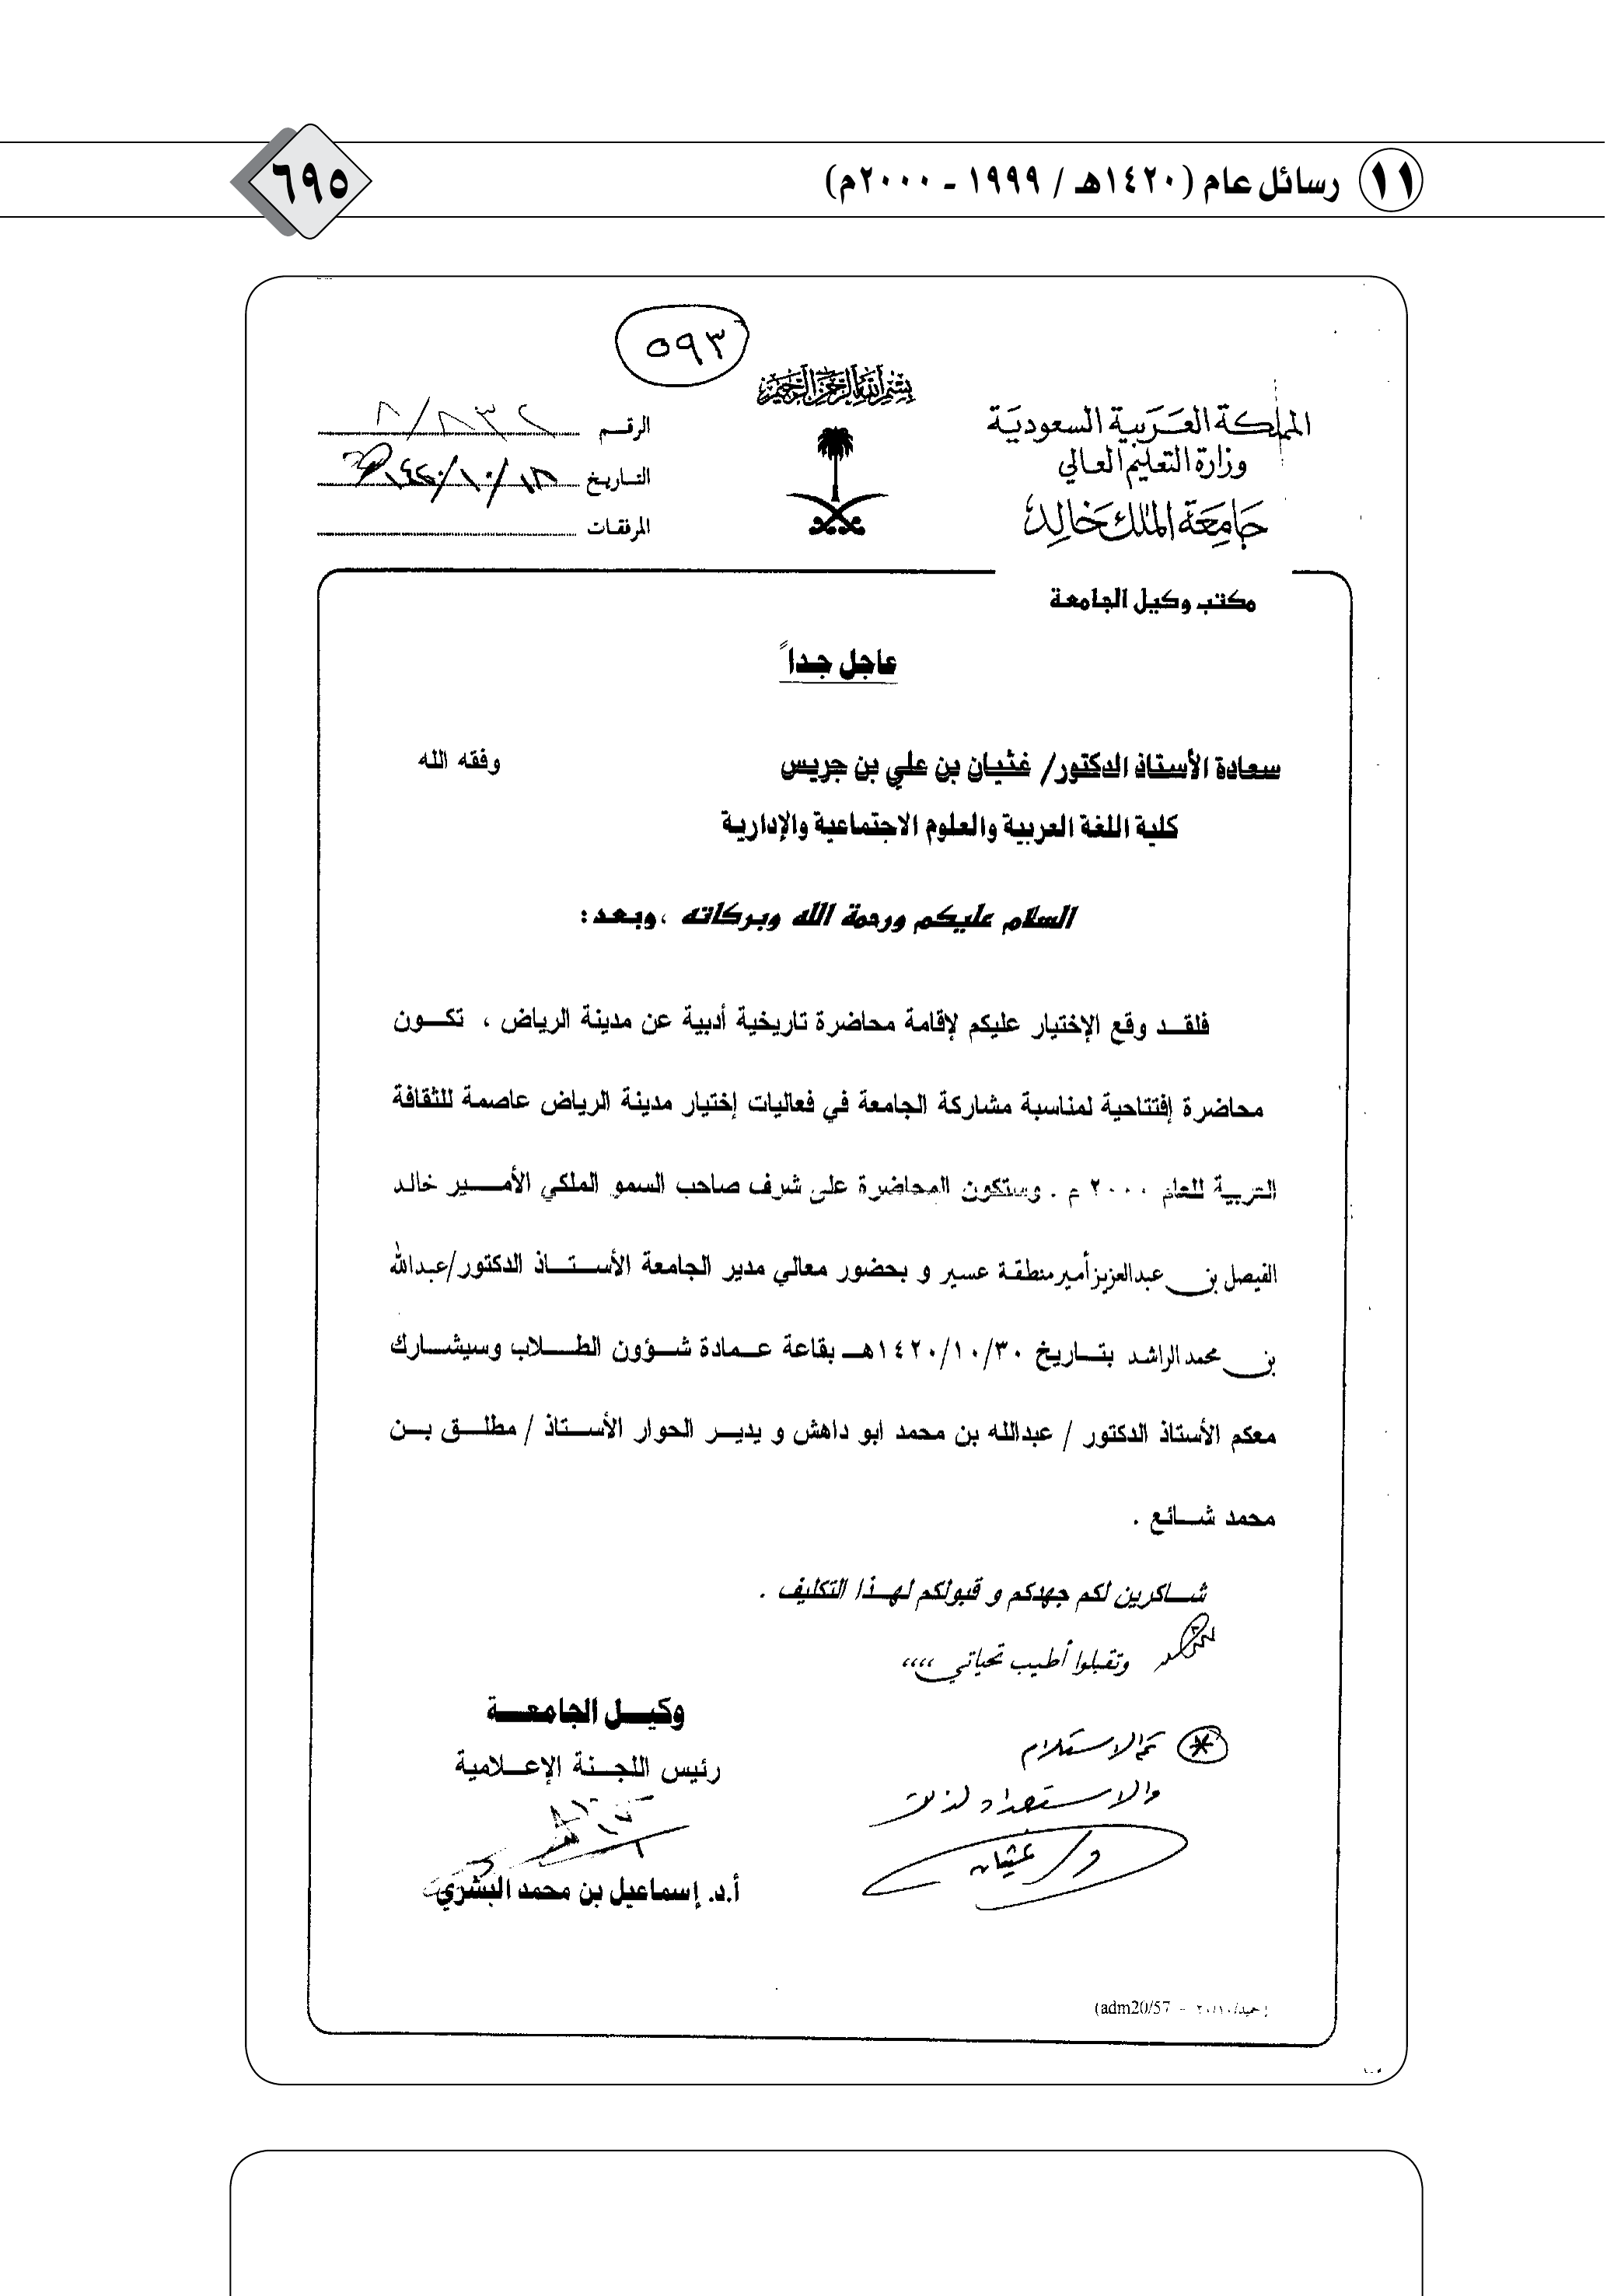 ١١ رسائل عام (١٤٢٠هـ / ١٩٩٩ - ٢٠٠٠م)
٦٩٥
٥٩٣
بسم الله الرحمن الرحيم
المملكة العربية السعودية
وزارة التعليم العالي
جامعة الملك خالد
الرقم
التاريخ ١٨/١٠/١٤٢٠
المرفقات
مكتب وكيل الجامعة
عاجل جداً
سعادة الأستاذ الدكتور/ غثيان بن علي بن جريس وفقه الله
كلية اللغة العربية والعلوم الاجتماعية والإدارية
السلام عليكم ورحمة الله وبركاته ، وبعد :
فلقد وقع الإختيار عليكم لإقامة محاضرة تاريخية أدبية عن مدينة الرياض ، تكون
محاضرة إفتتاحية لمناسبة مشاركة الجامعة في فعاليات إختيار مدينة الرياض عاصمة للثقافة
العربية للعام ٢٠٠٠ م . وستكون المحاضرة على شرف صاحب السمو الملكي الأمير خالد
الفيصل بن عبدالعزيز أمير منطقة عسير و بحضور معالي مدير الجامعة الأستاذ الدكتور/عبدالله
بن محمد الراشد بتاريخ ١٤٢٠/١٠/٣٠هـ بقاعة عمادة شؤون الطلاب وسيشارك
معكم الأستاذ الدكتور / عبدالله بن محمد ابو داهش و يدير الحوار الأستاذ / مطلق بن
محمد شائع .
شاكرين لكم جهدكم و قبولكم لهذا التكليف .
وتقبلوا أطيب تحياتي ،،،،
وكيل الجامعة
رئيس اللجنة الإعلامية
أ.د. إسماعيل بن محمد البشري
* تم الاستلام
والاستعداد لذلك
د/ غثيان
(adm20/57 -